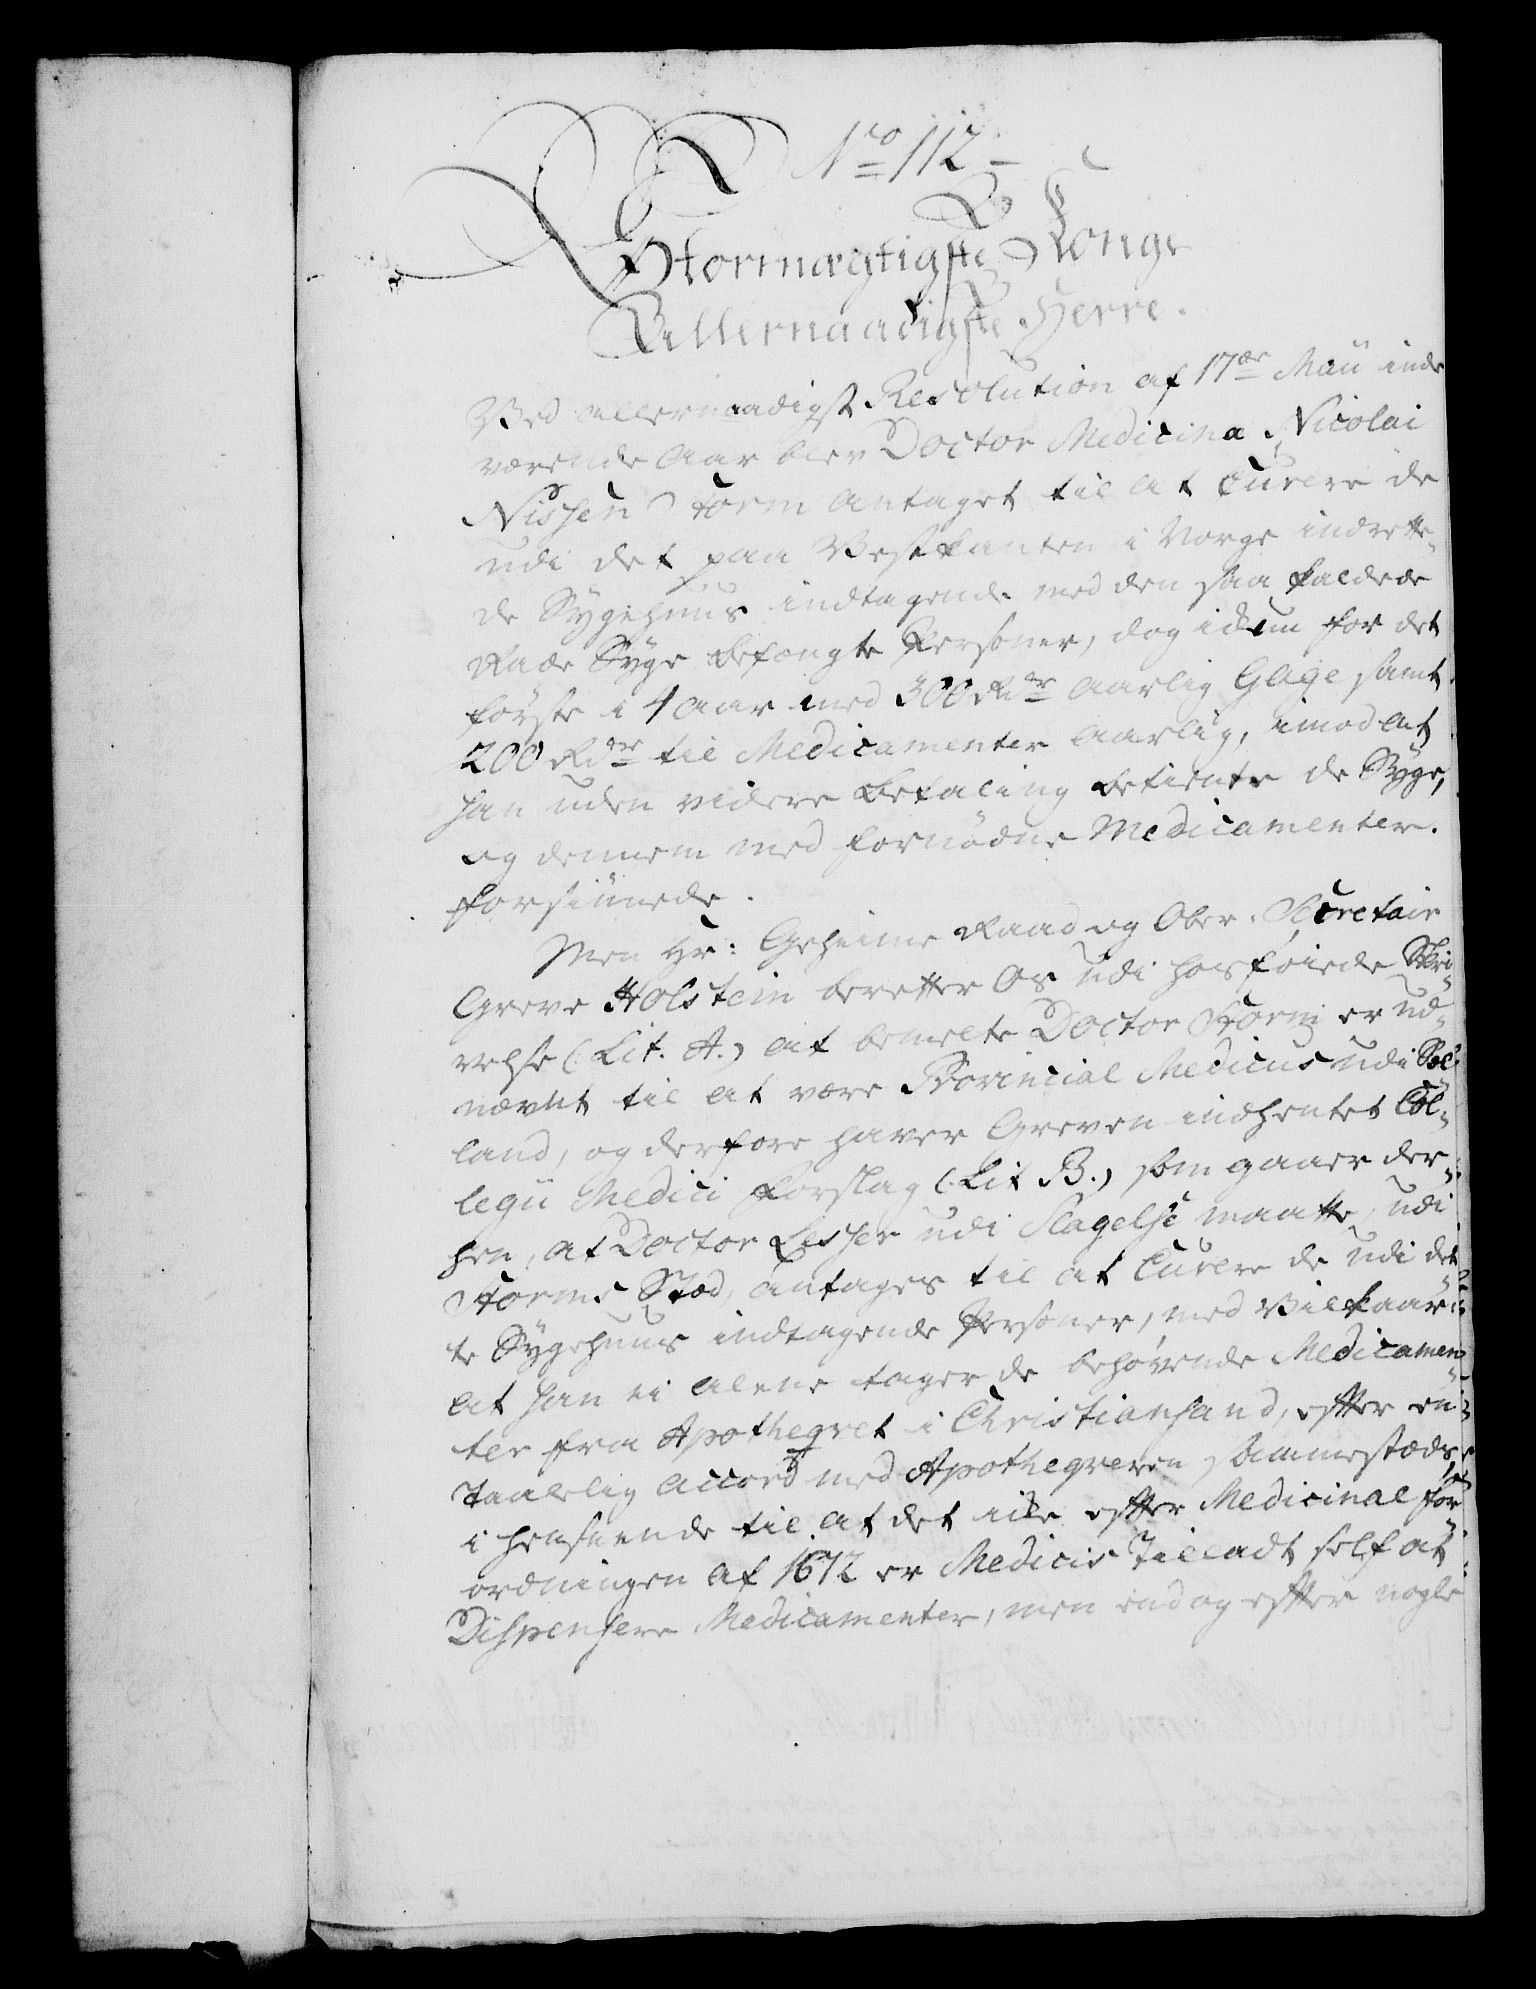 No 112
Stormægtigste Konge
Allernaadigste Herre.
Ved allernaadigst Resolution af 17de Maii inde
værende Aar blev Doctor Medicina Nicolai
Nissen Torm antaget til at Curere de
udi det paa Vestkanten i Norge indrette-
de Sygehuus indtagende med den saa kaldede
Rade Syge befængte Personer, dog ikkun for det
første i 4 Aar med 300 Rdr Aarlig Gage samt
200 Rdr til Medicamenter Aarlig, imod at
han uden videre betaling betiente de Syge,
og dennem med fornødne Medicamenter
forsiunede.
Men Hr: Geheime Raad og Ober-Secretair
Greve Holstein beretter Os udi hosføiede Skri-
velse (: Lit. A.) at bemelte Doctor Torm er ud-
nævnt til at være Provincial Medicus udi Sæl-
land, og derfore haver Greven indhentet Col-
legii Medici forslag (: Lit B.) som gaaer der-
hen, at Doctor Lesser udi Slagelse maatte, udi
Torms Sted, antages til at Curere de udi det
te Sygehuus indtagende Personer, med Vilkaar
at han ei alene tager de behøvende Medicamen-
ter fra Apothequet i Christiansand, efter en
Taalelig accord med Apothequeren sammestæds
i henseende til at det ikke efter Medicinal for-
ordningen af 1672 er Medicis Tilladt self at
Dispensere Medicamenter, men end og efter nogle